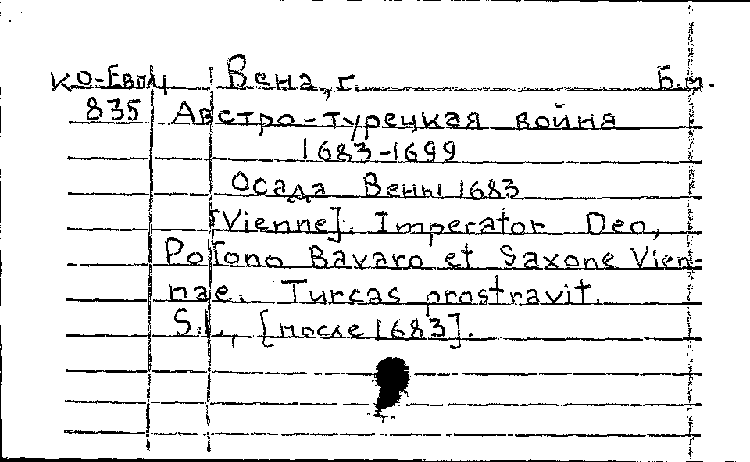 КО-Евпч Вена, г. Б.п.
835 Австро-турецкая война
1683-1699
Осада Вены 1683
[Vienne]. Imperator Deo,
Polono Bavaro et Saxone Vien-
nae. Turcas prostravit.
S.l., [после 1683].